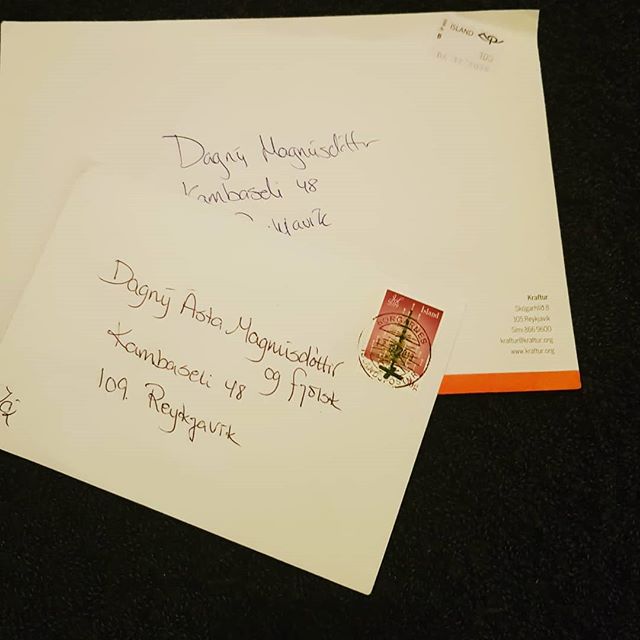 ÍSLAND
105
Dagný Magnúsdóttir
Kambaseli 48
Kraftur
Skógarhlíð 8
105 Reykjavík
Sími 866 9600
kraftur@kraftur.org
www.kraftur.org
Dagný Ásta Magnúsdóttir
og fjölsk
Kambaseli 48
109. Reykjavík
Ísland
BORGARNES